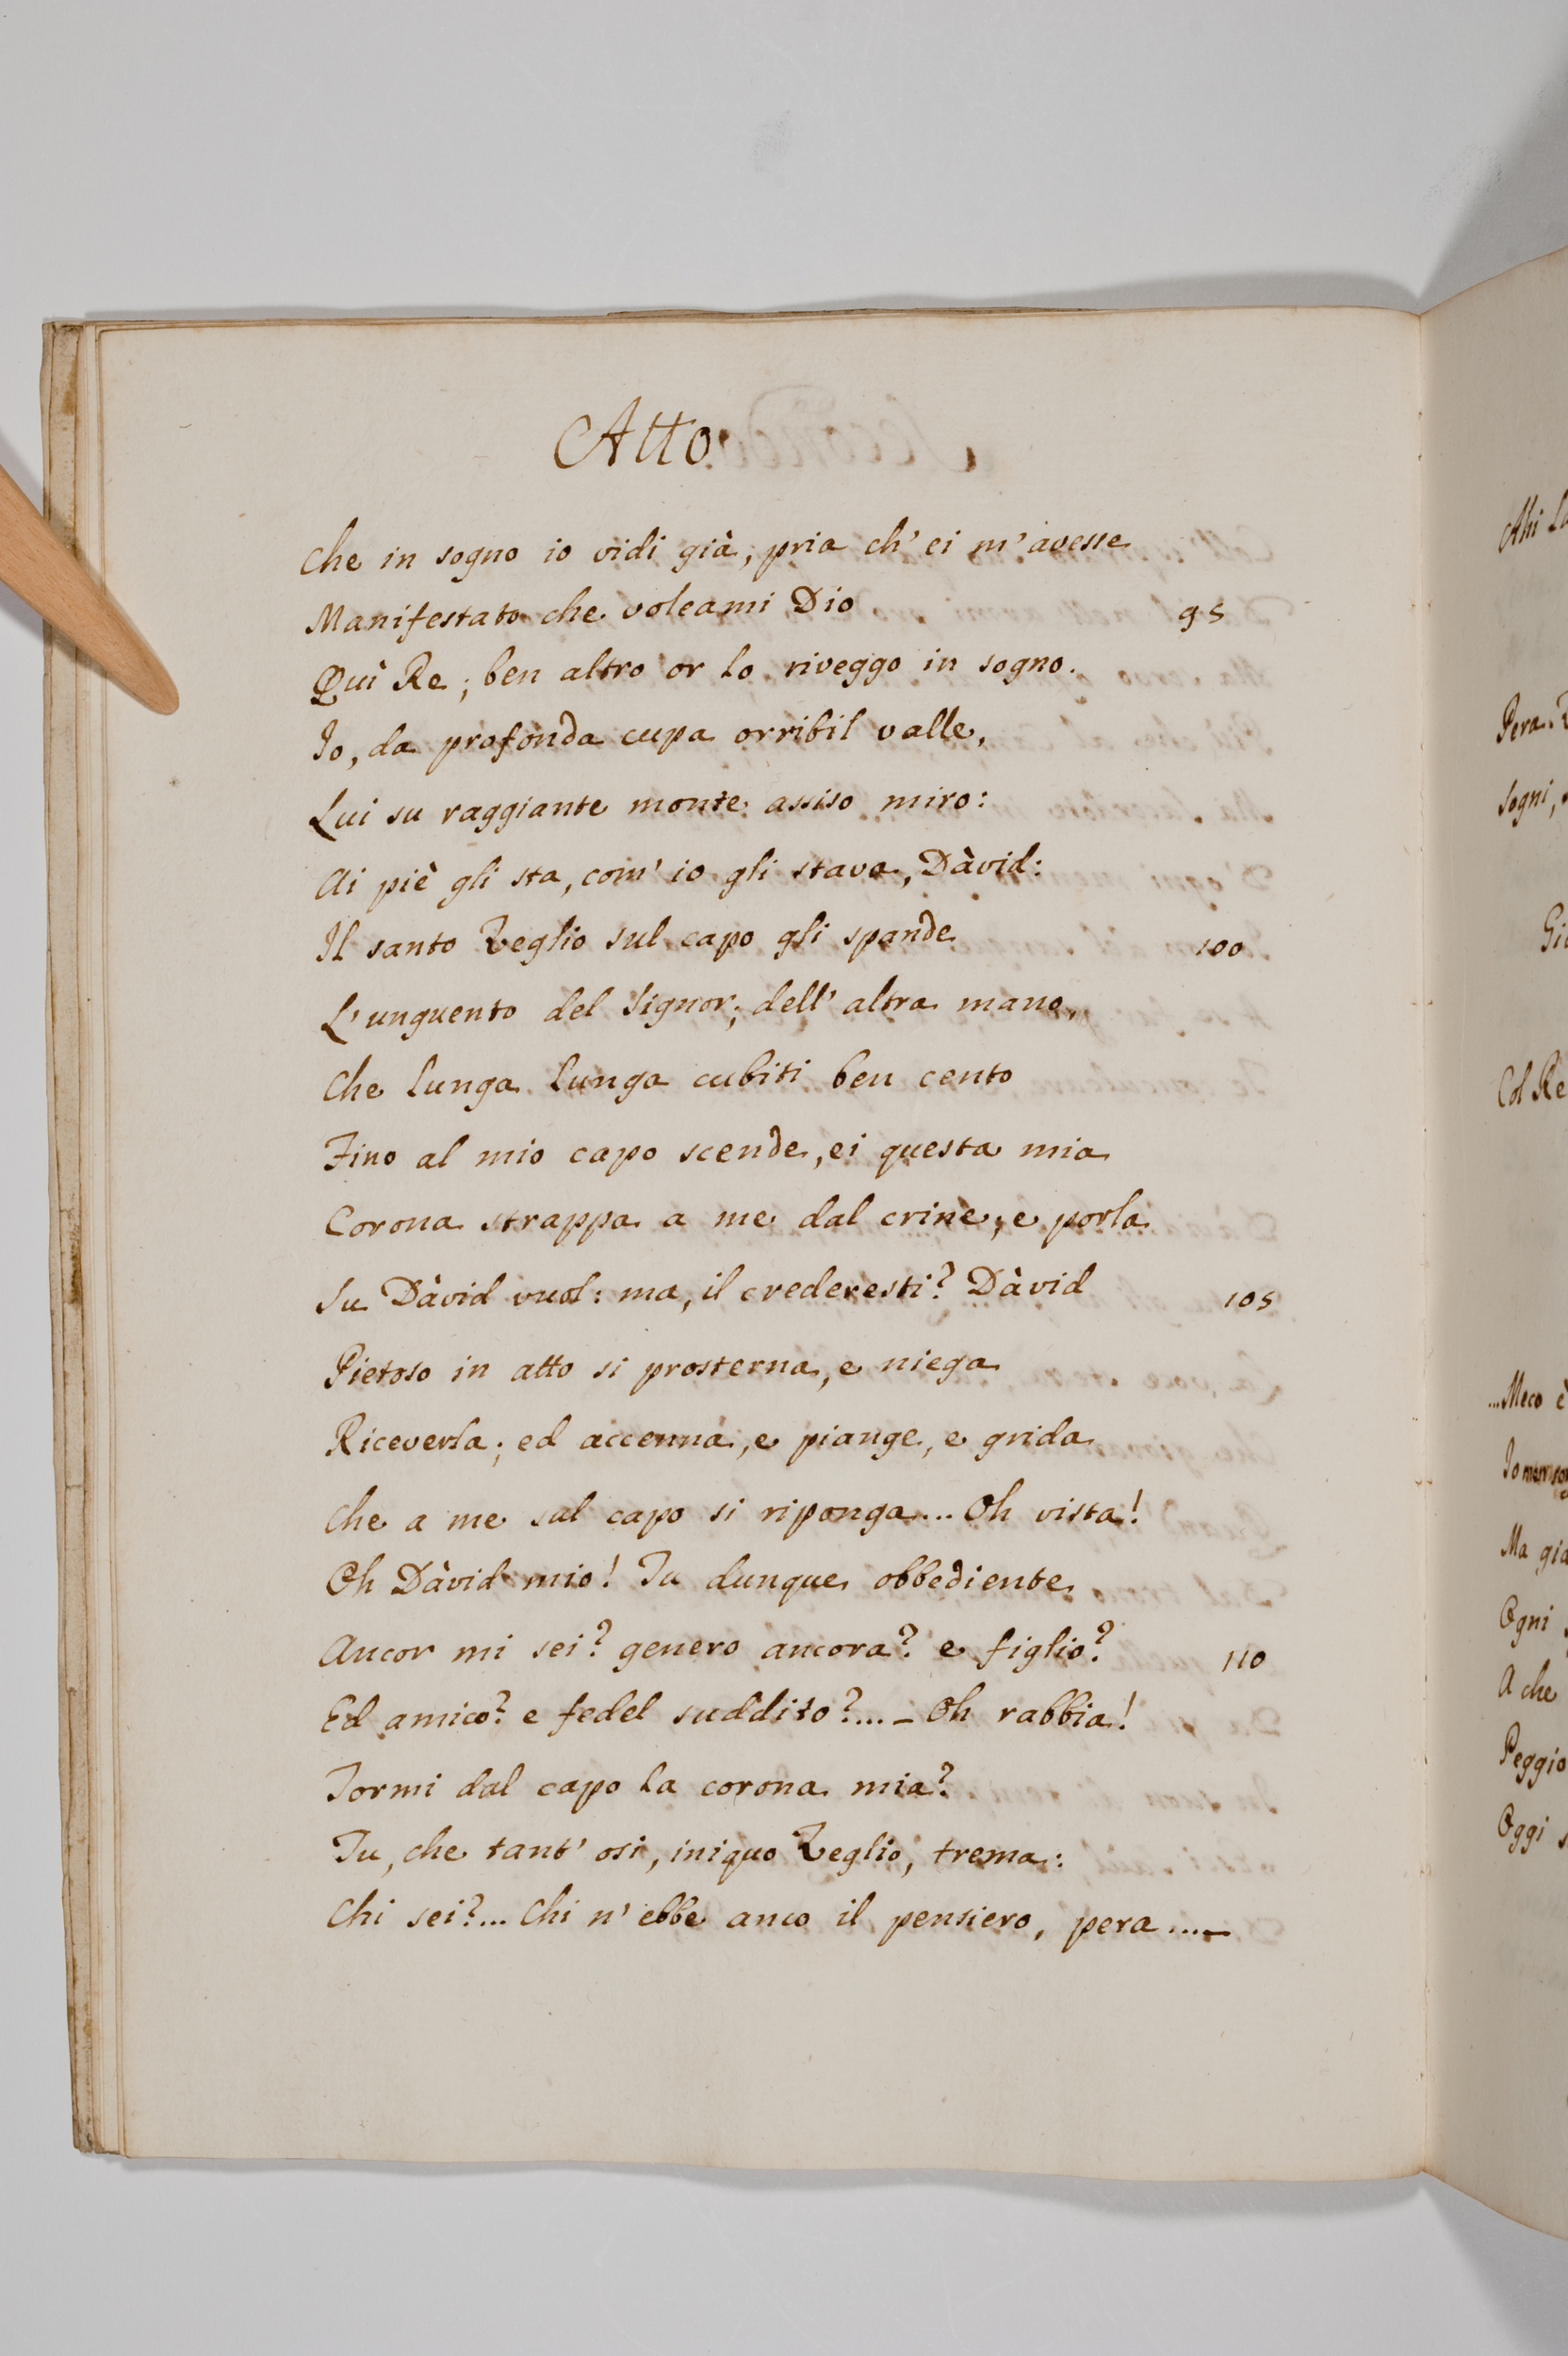 Atto
Che in sogno io vidi già, pria ch' ei m' avesse
Manifestato che voleami Dio 95
Quì Re; ben altro or lo riveggo in sogno.
Io, da profonda cupa orribil valle,
Lui su raggiante monte assiso miro:
Ai piè gli sta, com' io gli stava, Dàvid:
Il santo Veglio sul capo gli spande 100
L' unguento del Signor; dell' altra mano,
Che lunga lunga cubiti ben cento
Fino al mio capo scende, ei questa mia
Corona strappa a me dal crine; e porla
Su Dàvid vuol: ma, il crederesti? Dàvid 105
Pietoso in atto si prosterna, e niega
Riceverla; ed accenna, e piange, e grida
Che a me sul capo si riponga... Oh vista!
Oh Dàvid mio! Tu dunque obbediente
Ancor mi sei? genero ancora? e figlio? 110
Ed amico? e fedel suddito?... _ Oh rabbia!
Tormi dal capo la corona mia?
Tu, che tant' osi, iniquo Veglio, trema:
Chi sei?... Chi n' ebbe anco il pensiero, pera ...._
Ahi
Pera.
Sogni,
Col Re
...Meco è
Ma già
Ogni
A che
Peggio
Oggi